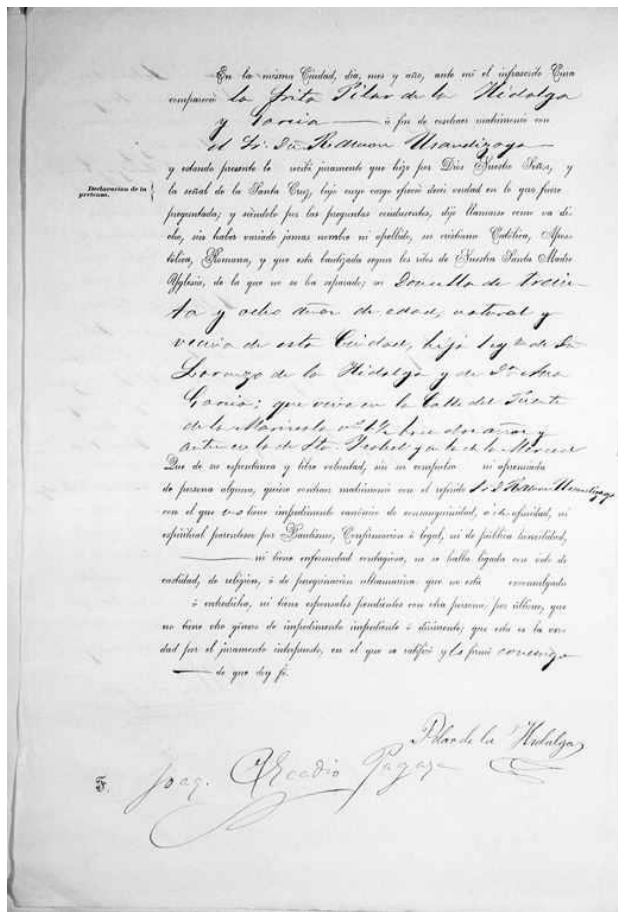 En la misma Ciudad, dia, mes y año, ante mi el infrascrito Cura
compareció la Srita Pilar de la Hidalga
y Garcia — á fin de contraer matrimonio con
el Sr. Dn Ramon Usandizaga
y estando presente le recibí juramento que hizo por Dios Nuestro Señor, y
Declaracion de la pretensa.
la señal de la Santa Cruz, bajo cuyo cargo ofreció decir verdad en lo que fuere
preguntada; y siéndolo por las preguntas conducentes, dijo llamarse como va di-
cho, sin haber variado jamas nombre ni apellido, es cristiana Católica, Apos-
tólica, Romana, y que está bautizada segun los ritos de Nuestra Santa Madre
Yglesia, de la que no se ha separado; es Doncella de trein-
ta y ocho años de edad, natural y
vecina de esta Ciudad, hija legma de Dn
Lorenzo de la Hidalga y de Da Ana
Garcia; que vive en la Calle del Puente
de la Mariscala no hace dos años y
antes en la de Sta Ysabel y en la de la Merced
Que de su espontánea y libre voluntad, sin ser compulsa ni apremiada
de persona alguna, quiere contraer matrimonio con el referido Sr D Ramon Usandizaga
con el que no tiene impedimento canónico de consanguinidad, ó de afinidad, ni
espiritual parentesco por Bautismo, Confirmacion ó legal, ni de pública honestidad,
— ni tiene enfermedad contagiosa, no se halla ligada con voto de
castidad, de religion, ó de peregrinacion ultramarina: que no está excomulgada
ó entredicha, ni tiene esponsales pendientes con otra persona; por último, que
no tiene otro género de impedimento impediente ó dirimente; que esta es la ver-
dad por el juramento interpuesto, en el que se ratificó y lo firmó conmigo
— de que doy fé.
Pilar de la Hidalga
F. Joaq. Arcadio Pagaza